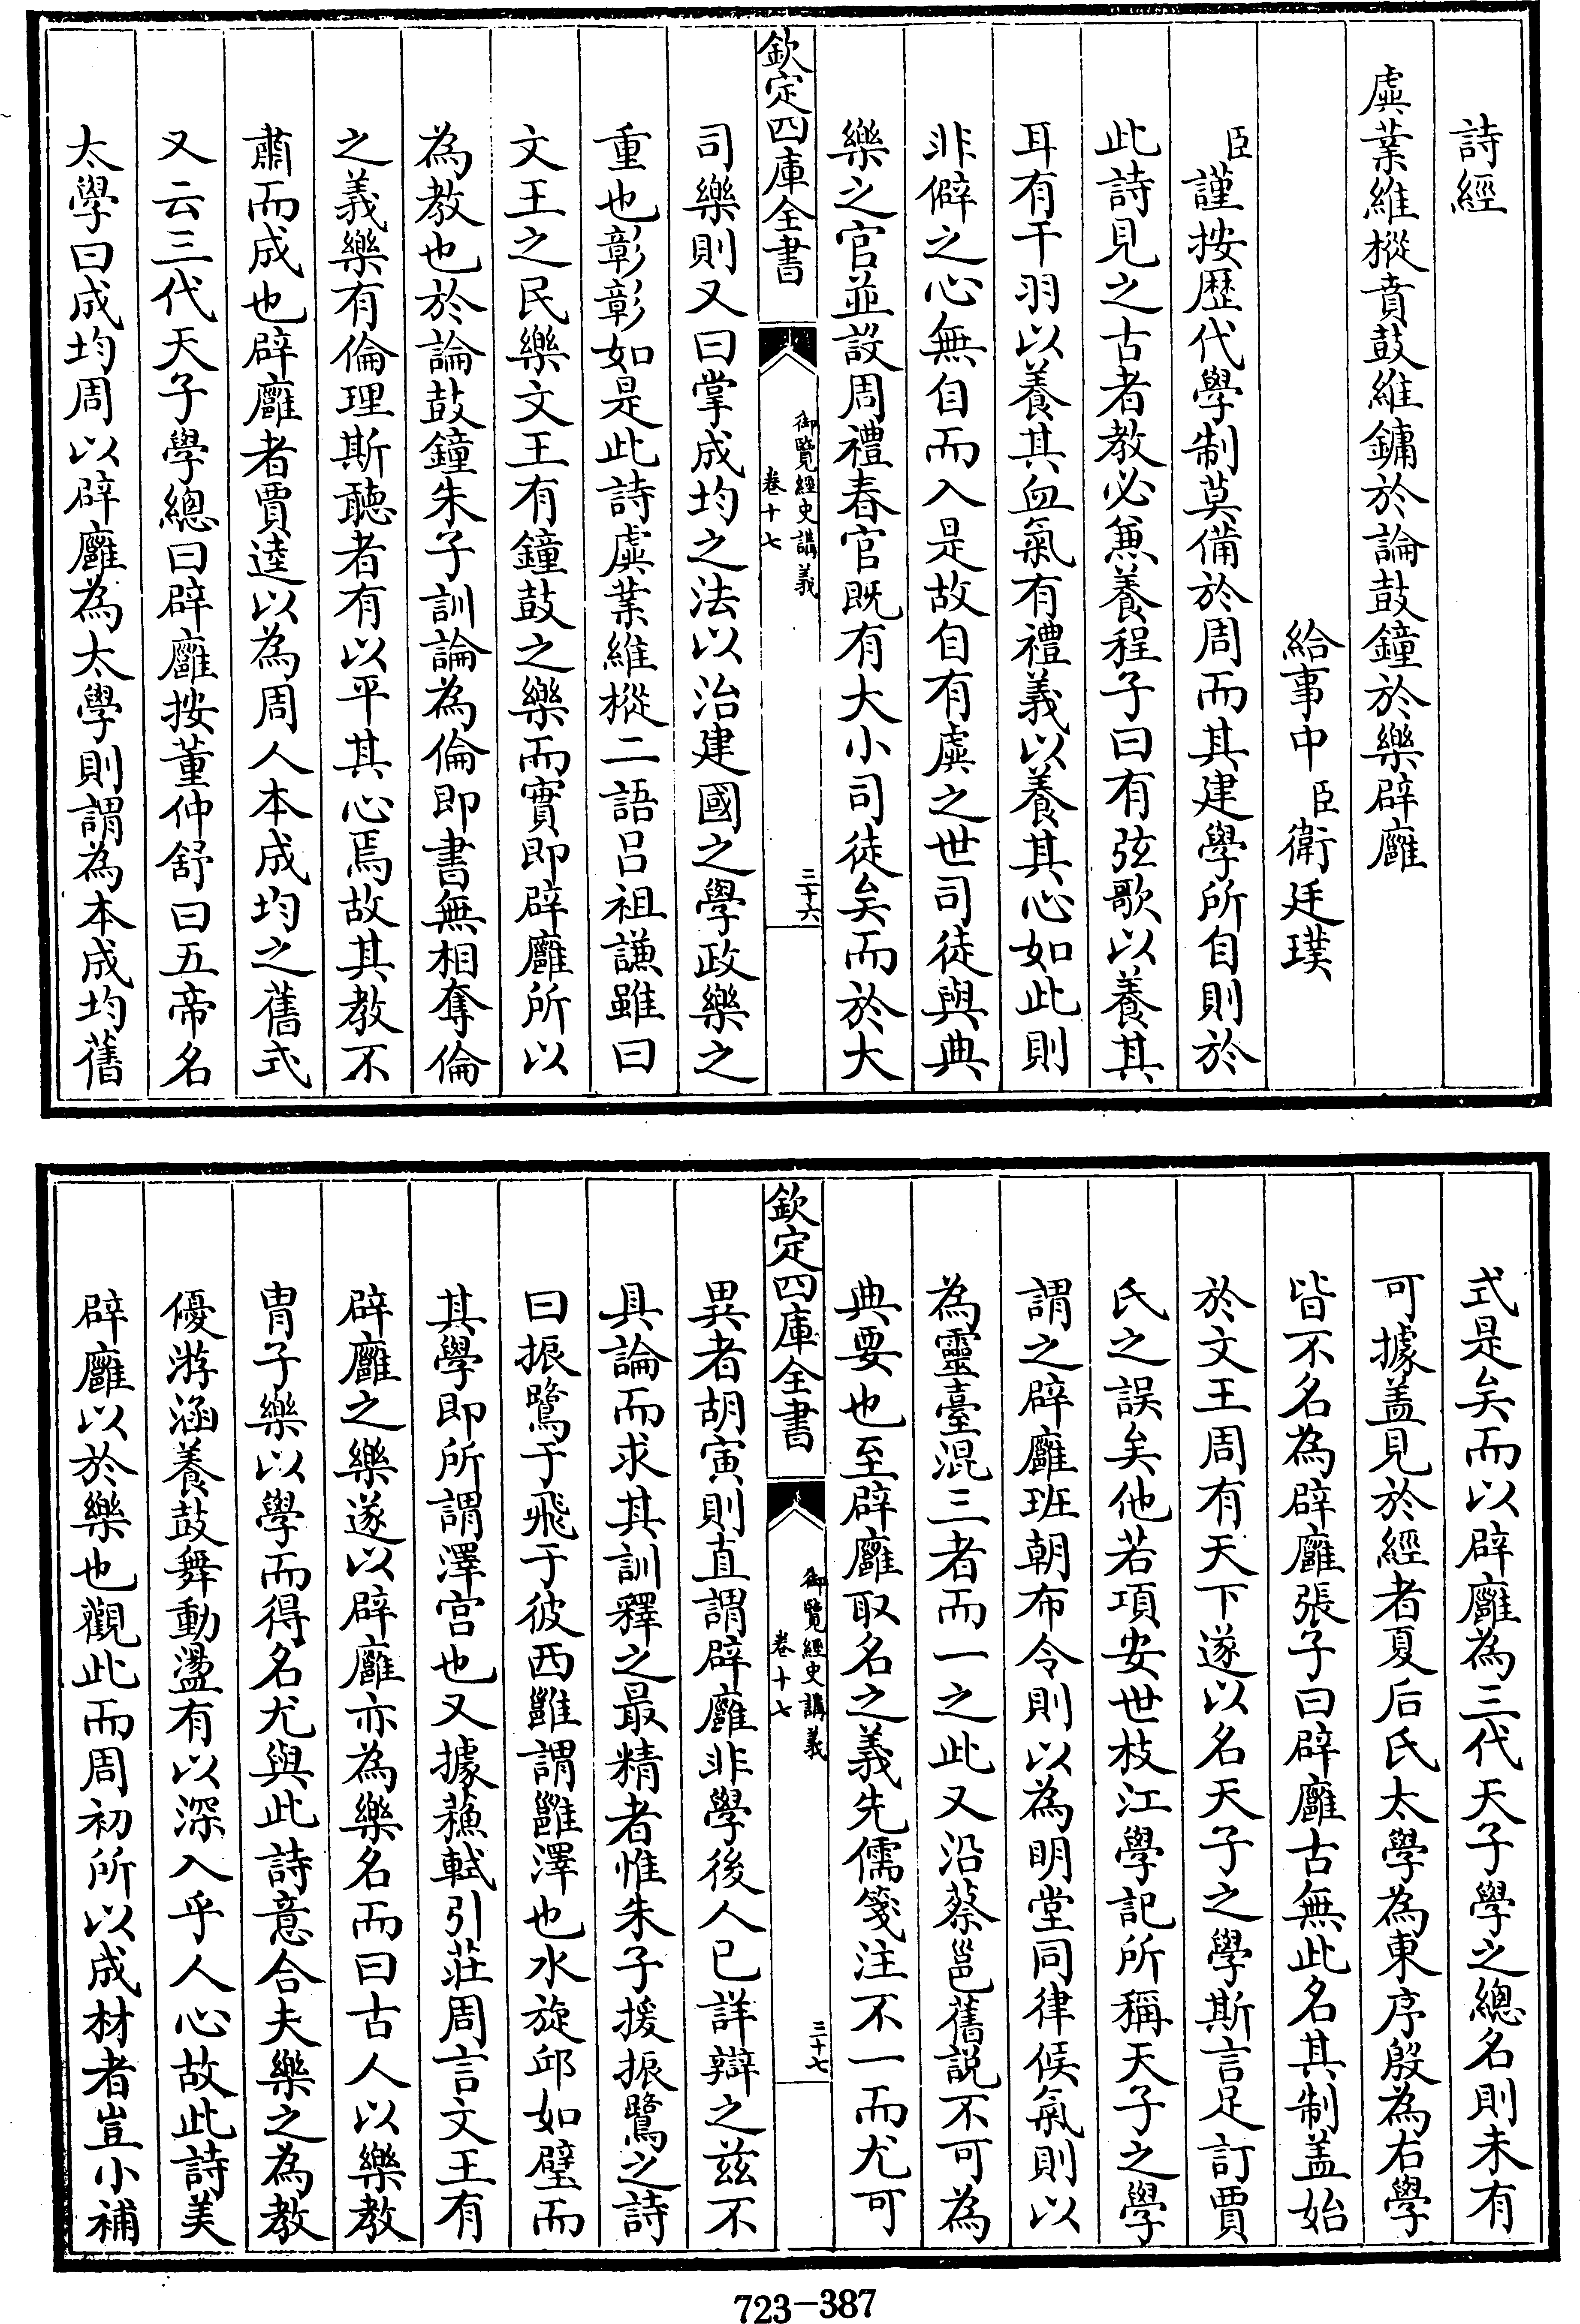 詩經
虡業維樅賁鼓維鏞於論鼓鐘於樂辟廱
給事中臣衛廷璞
臣謹按歷代學制莫備於周而其建學所自則於
此詩見之古者教必兼養程子曰有弦歌以養其
耳有干羽以養其血氣有禮義以養其心如此則
非僻之心無自而入是故自有虞之世司徒與典
樂之官並設周禮春官既有大小司徒矣而於大
欽定四庫全書
御覽經史講義
卷十七
三十六
司樂則又曰掌成均之法以治建國之學政樂之
重也彰彰如是此詩虡業維樅二語呂祖謙雖曰
文王之民樂文王有鐘鼓之樂而實即辟廱所以
為教也於論鼓鐘朱子訓論為倫即書無相奪倫
之義樂有倫理斯聽者有以平其心焉故其教不
肅而成也辟廱者賈逵以為周人本成均之舊式
又云三代天子學總曰辟廱按董仲舒曰五帝名
太學曰成均周以辟廱為太學則謂為本成均舊
式是矣而以辟廱為三代天子學之總名則未有
可據盖見於經者夏后氏太學為東序殷為右學
皆不名為辟廱張子曰辟廱古無此名其制盖始
於文王周有天下遂以名天子之學斯言足訂賈
氏之誤矣他若項安世枝江學記所稱天子之學
謂之辟廱班朝布令則以為明堂同律候氣則以
為靈臺混三者而一之此又沿蔡邕舊說不可為
典要也至辟廱取名之義先儒箋注不一而尤可
欽定四庫全書
御覽經史講義
卷十七
三十七
異者胡寅則直謂辟廱非學後人已詳辯之茲不
具論而求其訓釋之最精者惟朱子援振鷺之詩
曰振鷺于飛于彼西雝謂雝澤也水旋邱如璧而
其學即所謂澤宫也又據蘇軾引莊周言文王有
辟廱之樂遂以辟廱亦為樂名而曰古人以樂教
胄子樂以學而得名尤與此詩意合夫樂之為教
優游涵養鼓舞動盪有以深入乎人心故此詩美
辟廱以於樂也觀此而周初所以成材者豈小補
723-387